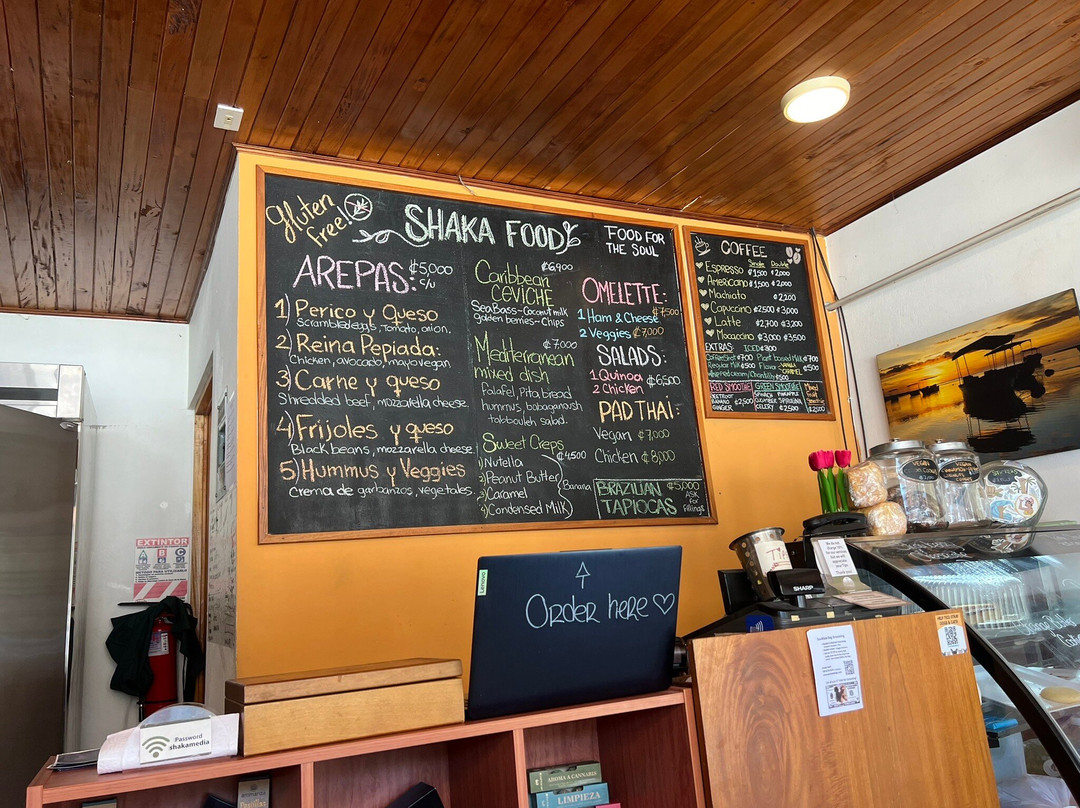 Gluten
free!
SHAKA FOOD
FOOD FOR
THE SOUL
AREPAS: ₡5,000
c/u
1) Perico y Queso
Scrambled eggs, tomato, onion.
2) Reina Pepiada:
Chicken, avocado, mayo vegan
3) Carne y queso
Shredded beef, mozzarella cheese
4) Frijoles y queso
Black beans, mozzarella cheese.
5) Hummus y Veggies
Crema de garbanzos, vegetales.
₡6,900
Caribbean
CEVICHE
Sea Bass-Coconut milk
golden berries-Chips
₡7,000
Mediterranean
mixed dish
Falafel, pita bread
hummus, babaganoush
tabbouleh salad.
Sweet Creps
₡4,500
1) Nutella
2) Peanut Butter
3) Caramel
4) Condensed Milk
Banana
OMELETTE:
1 Ham & Cheese ₡7,500
2 Veggies ₡7,000
SALADS:
1 Quinoa
2 Chicken
₡6,500
PAD THAI:
Vegan ₡7,000
Chicken ₡8,000
BRAZILIAN
TAPIOCAS
₡5,000
ASK
for
fillings
COFFEE
Single Double
Espresso ₡1,500 ₡2,000
Americano ₡1,500 ₡2,000
Machiato ₡2,200
Capuccino ₡2,500 ₡3,000
Latte ₡2,700 ₡3,200
Mocaccino ₡3,000 ₡3,500
EXTRAS: ICED ₡300
Coffee Shot ₡700 Plant based Milk ₡700
Regular Milk ₡500 Flavor
VANILLA
CARAMEL
₡500
RED SMOOTHIE
BEETROOT
BANANA
GINGER
₡2,500
GREEN SMOOTHIE
SPINACH PINEAPPLE
CUCUMBER SPIRULINA
CELERY ₡2,500
₡2,500
EXTINTOR
B C
Lenovo
Order here
SHARP
Password
shakamedia
AROMA A CANNABIS
LIMPIEZA